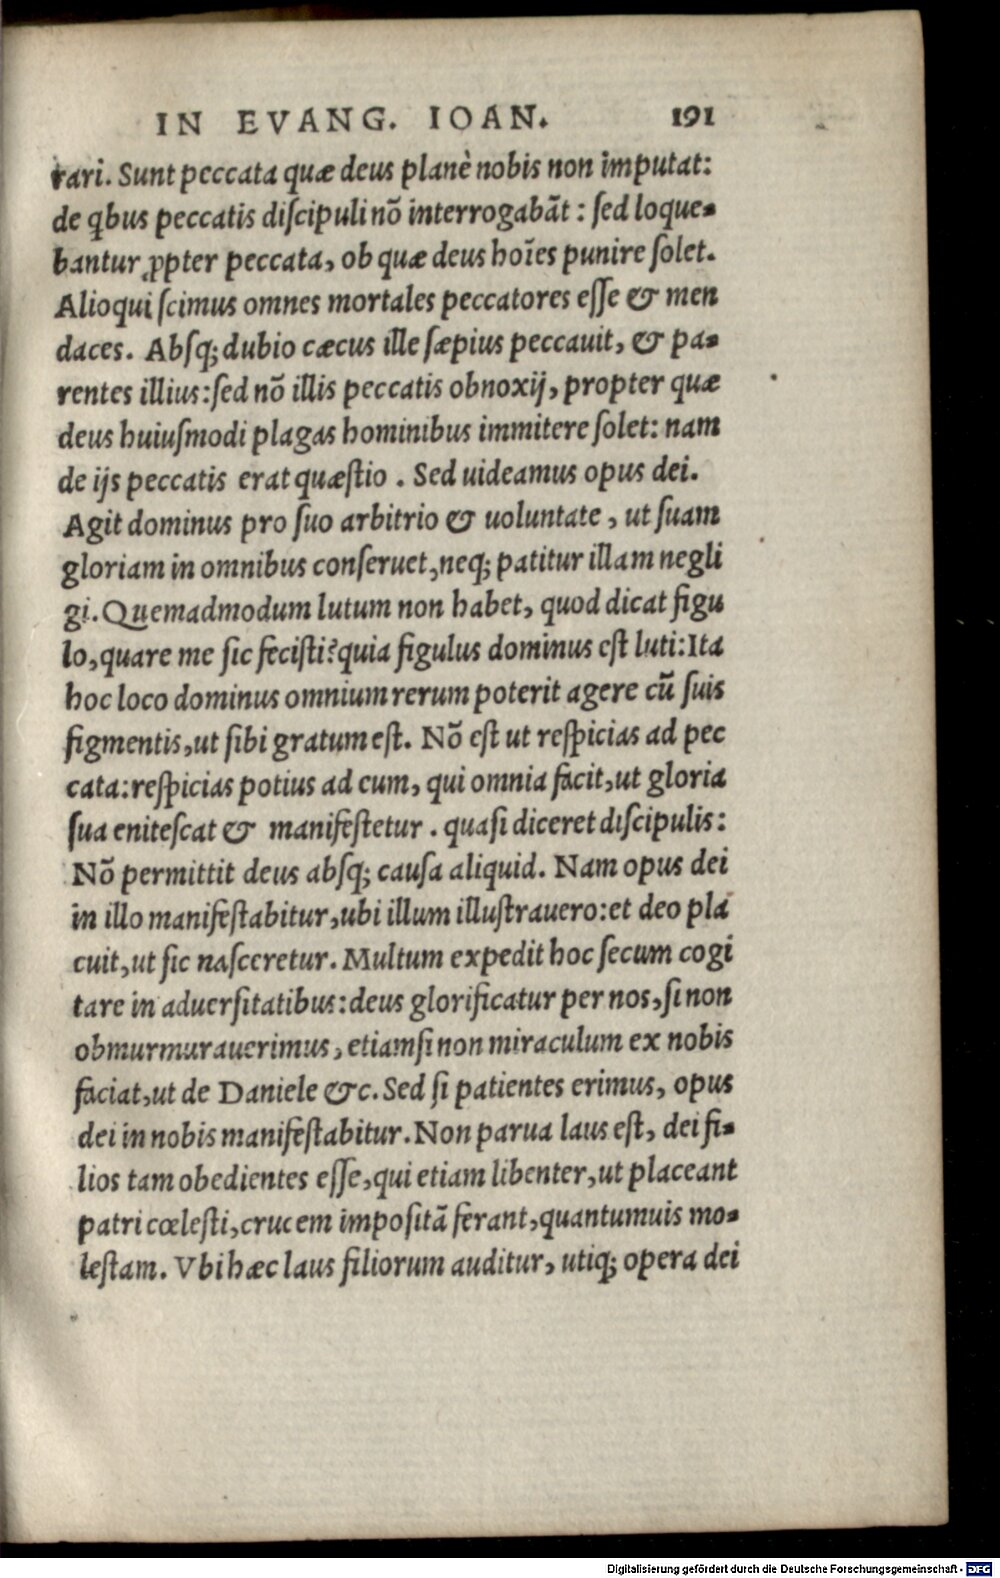 IN EVANG. IOAN. 191
rari. Sunt peccata quæ deus planè nobis non imputat:
de qbus peccatis diſcipuli nõ interrogabãt : ſed loque-
bantur ꝓpter peccata, ob quæ deus hoĩes punire ſolet.
Alioqui ſcimus omnes mortales peccatores eſſe & men
daces. Abſq; dubio cæcus ille ſæpius peccauit, & pa-
rentes illius:ſed nõ illis peccatis obnoxij, propter quæ
deus huiuſmodi plagas hominibus immitere ſolet: nam
de ijs peccatis erat quæſtio . Sed uideamus opus dei.
Agit dominus pro ſuo arbitrio & uoluntate , ut ſuam
gloriam in omnibus conſeruet,neq; patitur illam negli
gi. Quemadmodum lutum non habet, quod dicat figu
lo,quare me ſic feciſti?quia figulus dominus eſt luti:Ita
hoc loco dominus omnium rerum poterit agere cũ ſuis
figmentis,ut ſibi gratum eſt. Nõ eſt ut reſpicias ad pec
cata:reſpicias potius ad eum, qui omnia facit,ut gloria
ſua eniteſcat & manifeſtetur . quaſi diceret diſcipulis:
Nõ permittit deus abſq; cauſa aliquid. Nam opus dei
in illo manifeſtabitur,ubi illum illuſtrauero:et deo pla
cuit,ut ſic naſceretur. Multum expedit hoc ſecum cogi
tare in aduerſitatibus:deus glorificatur per nos,ſi non
obmurmurauerimus, etiamſi non miraculum ex nobis
faciat,ut de Daniele &c. Sed ſi patientes erimus, opus
dei in nobis manifeſtabitur. Non parua laus eſt, dei fi-
lios tam obedientes eſſe,qui etiam libenter,ut placeant
patri cœleſti,crucem impoſitã ferant,quantumuis mo-
leſtam. Vbi hæc laus filiorum auditur, utiq; opera dei
Digitalisierung gefördert durch die Deutsche Forschungsgemeinschaft - DFG